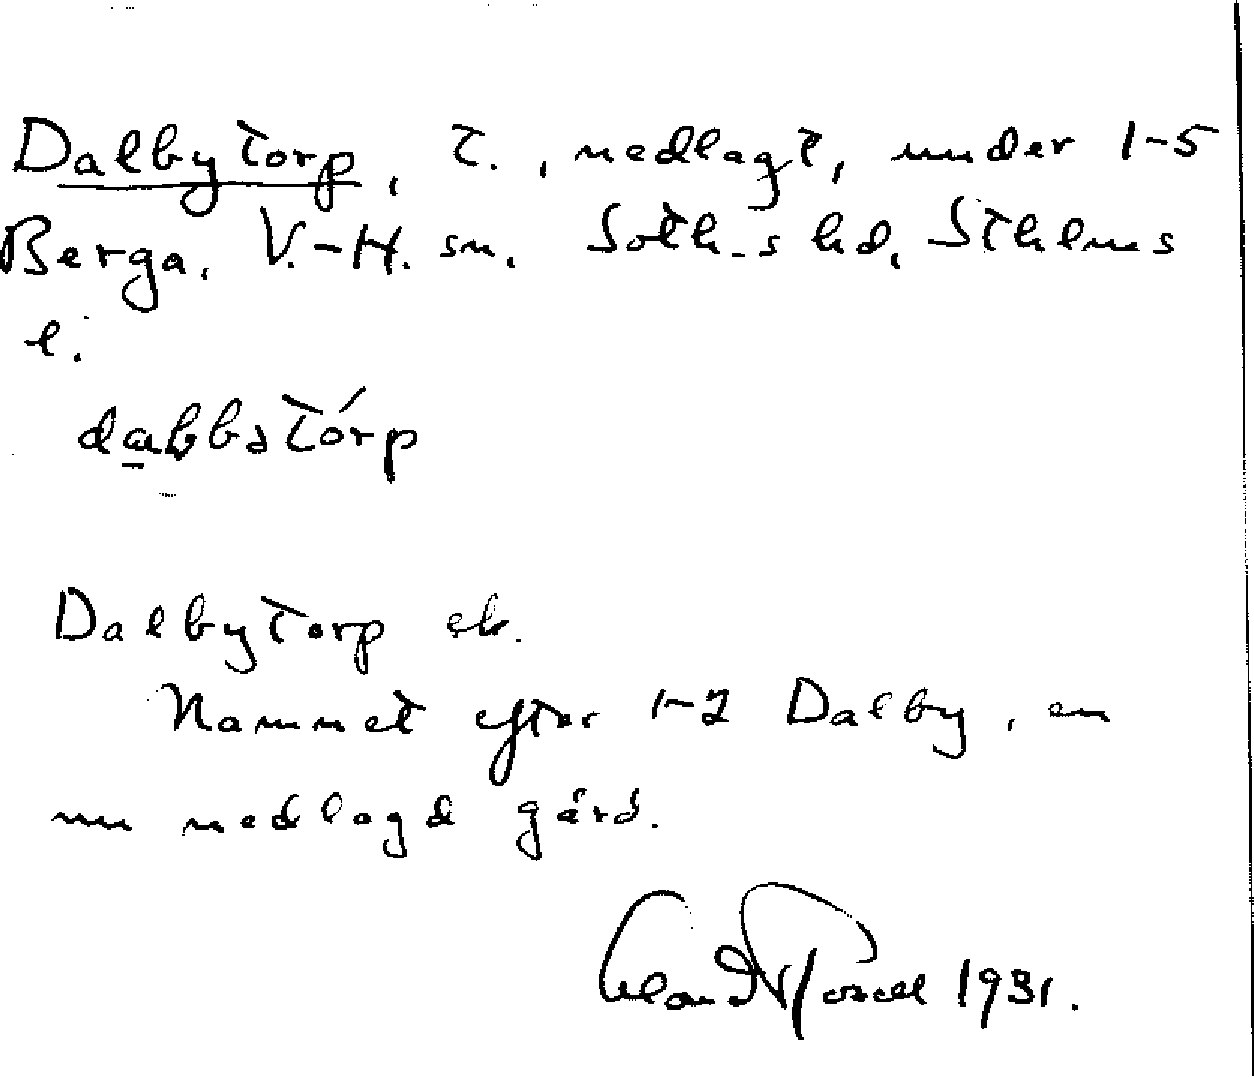 Dalbytorp, t., nedlagt, under 1-5
Berga, V.-H. sn, Soth-s hd, Sthlms
l.
dabbstórp
Dalbytorp ek.
Namnet efter 1-2 Dalby, en
nu nedlagd gård.
1931.